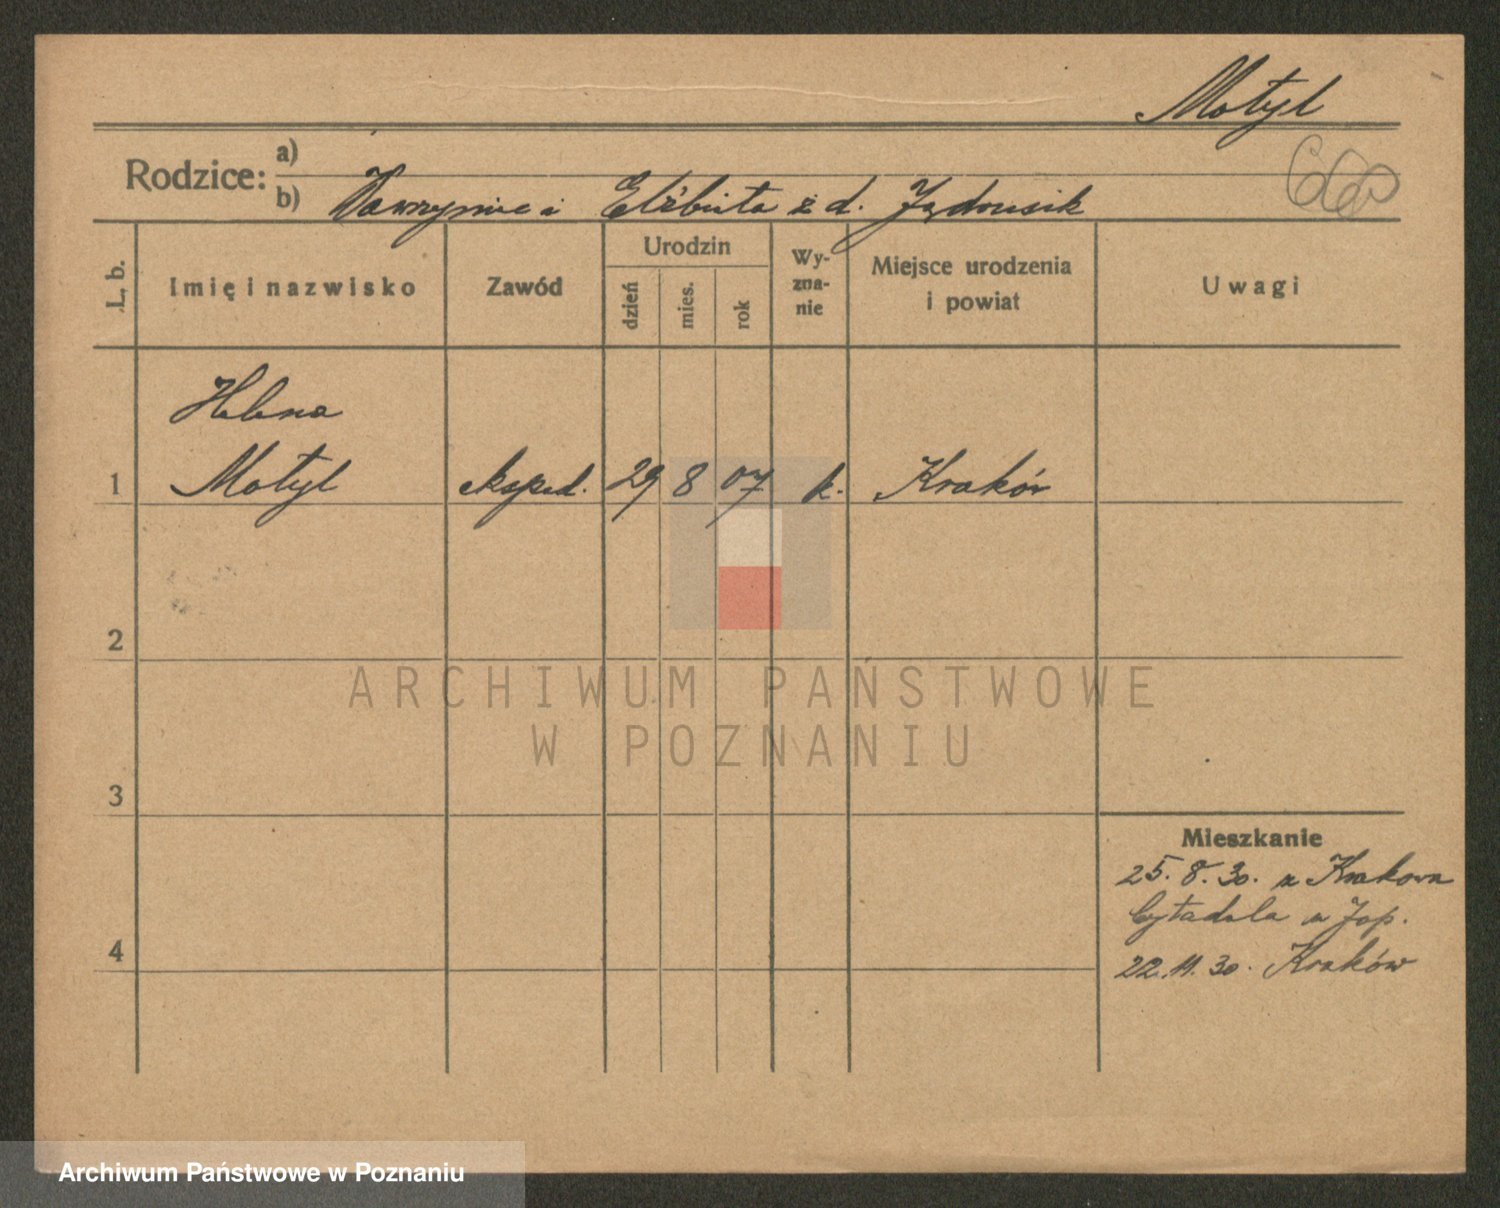 Motyl
Rodzice: a)
b) Wawrzyniec i Elżbieta z d.
L. b. Imię i nazwisko Zawód Urodzin dzień mies. rok Wy-zna-nie Miejsce urodzenia i powiat Uwagi
Helena
1 Motyl eksped. 29 8 07 k. Kraków
2
ARCHIWUM PAŃSTWOWE
W POZNANIU
3
Mieszkanie
25. 8. 30. z Krakowa
Cytadela u
4
22. 11. 30. Kraków
Archiwum Państwowe w Poznaniu